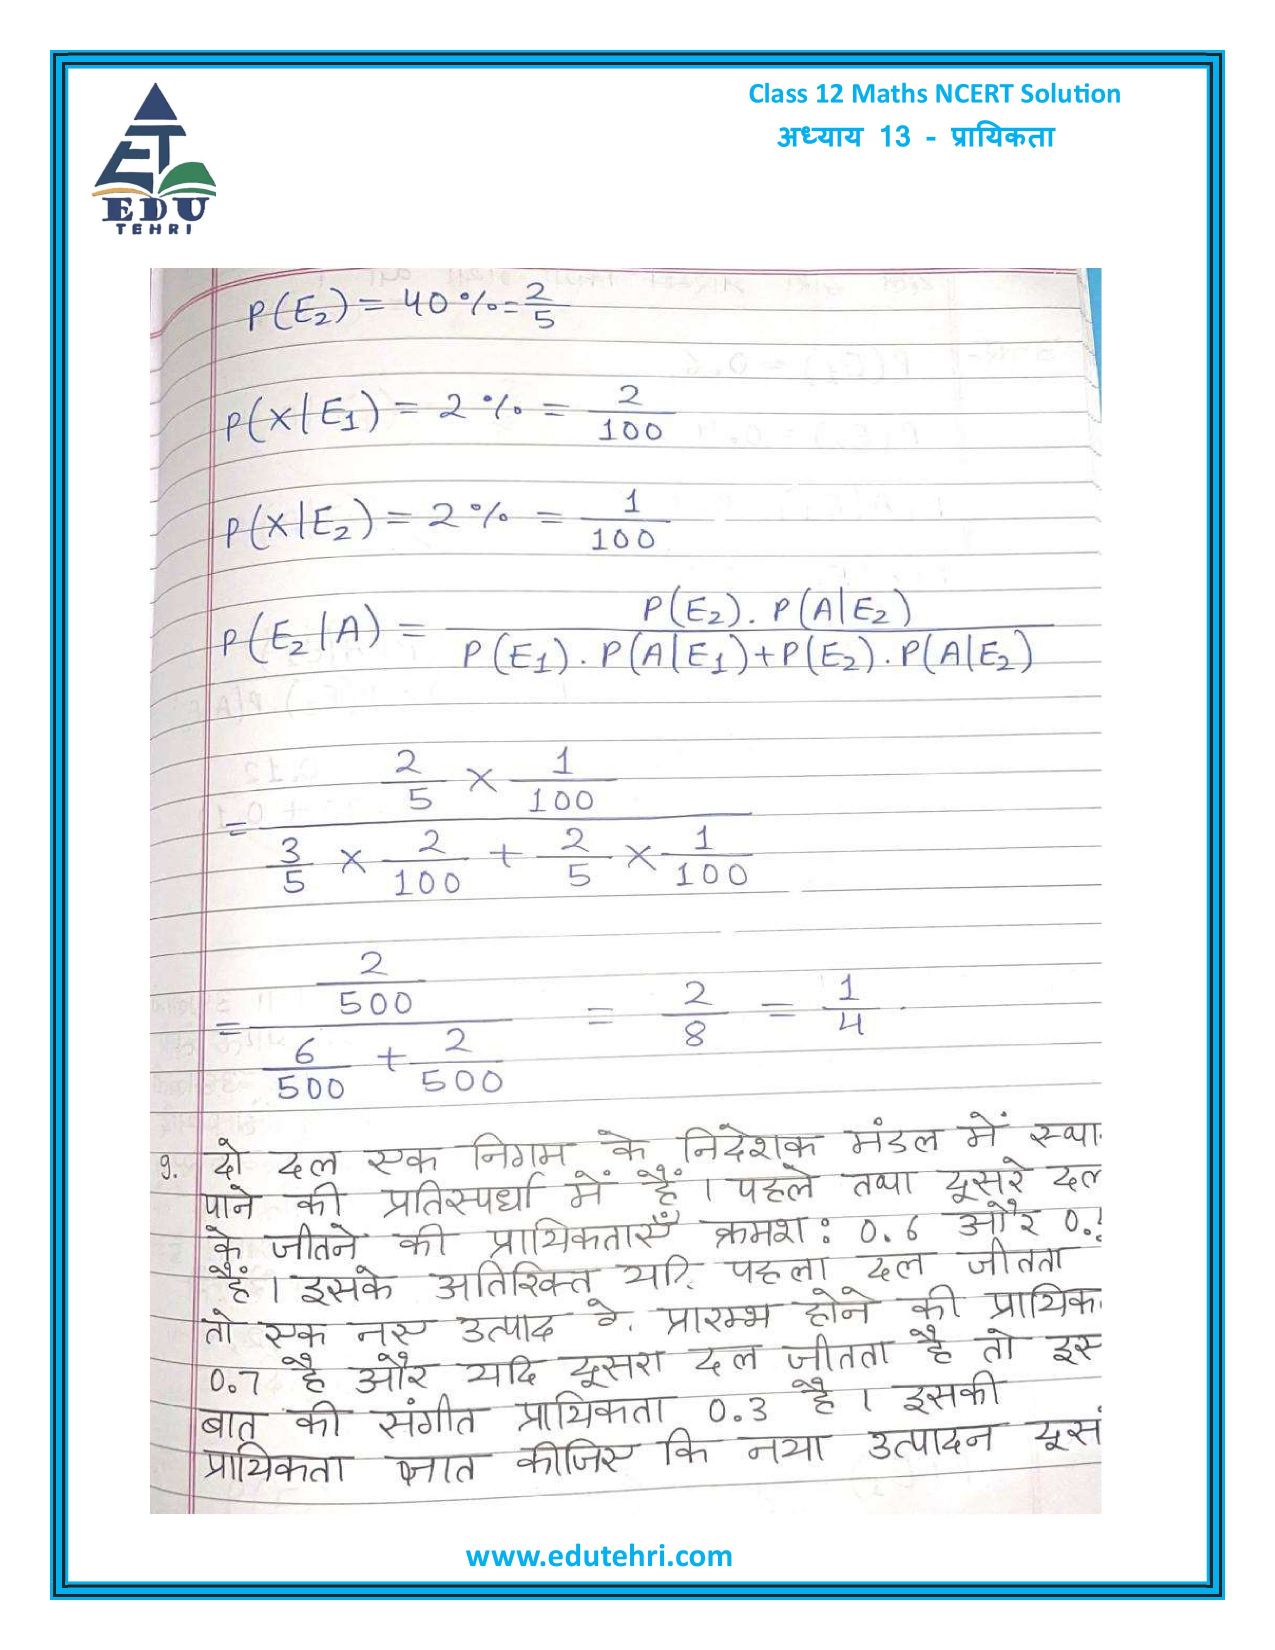 Class 12 Maths NCERT Solution
अध्याय 13 - प्रायिकता
EDU
TEHRI
P(E₂) = 40% = 2/5
P(X|E₁) = 2% = 2/100
P(X|E₂) = 2% = 1/100
P(E₂|A) = P(E₂). P(A|E₂) / P(E₁). P(A|E₁) + P(E₂). P(A|E₂)
= 2/5 × 1/100 / 3/5 × 2/100 + 2/5 × 1/100
= 2/500 / 6/500 + 2/500 = 2/8 = 1/4
9. दो दल एक निगम के निदेशक मंडल में स्था
पाने की प्रतिस्पर्धा में हैं। पहले तथा दूसरे दल
के जीतने की प्रायिकताएँ क्रमश: 0.6 और 0.
हैं। इसके अतिरिक्त यदि पहला दल जीतता
तो एक नए उत्पाद के प्रारम्भ होने की प्रायिक
0.7 है और यदि दूसरा दल जीतता है तो इस
बात की संगीत प्रायिकता 0.3 है। इसकी
प्रायिकता ज्ञात कीजिए कि नया उत्पादन दूस
www.edutehri.com